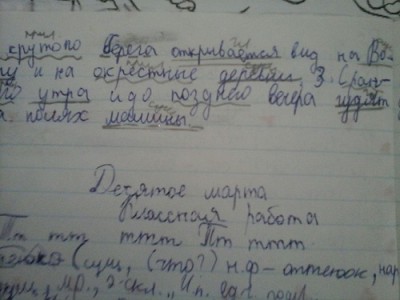 крутого берега открывается вид на Во-
у и на окрестные деревни. 3. С ран-
го утра и до позднего вечера гудят
а полях машины.
Десятое марта
Классная работа
Пт тт ттт Пт ттт
(сущ., (что?) н.ф - оттенок, нар
, мр., 2 скл., И.п. ед.ч.